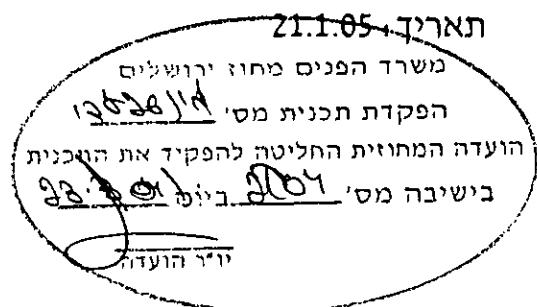 תאריך: 21.1.05
משרד הפנים מחוז ירושלים
הפקדת תכנית מס'
הועדה המחוזית החליטה להפקיד את התוכנית
בישיבה מס' ביום
יו"ר הועדה